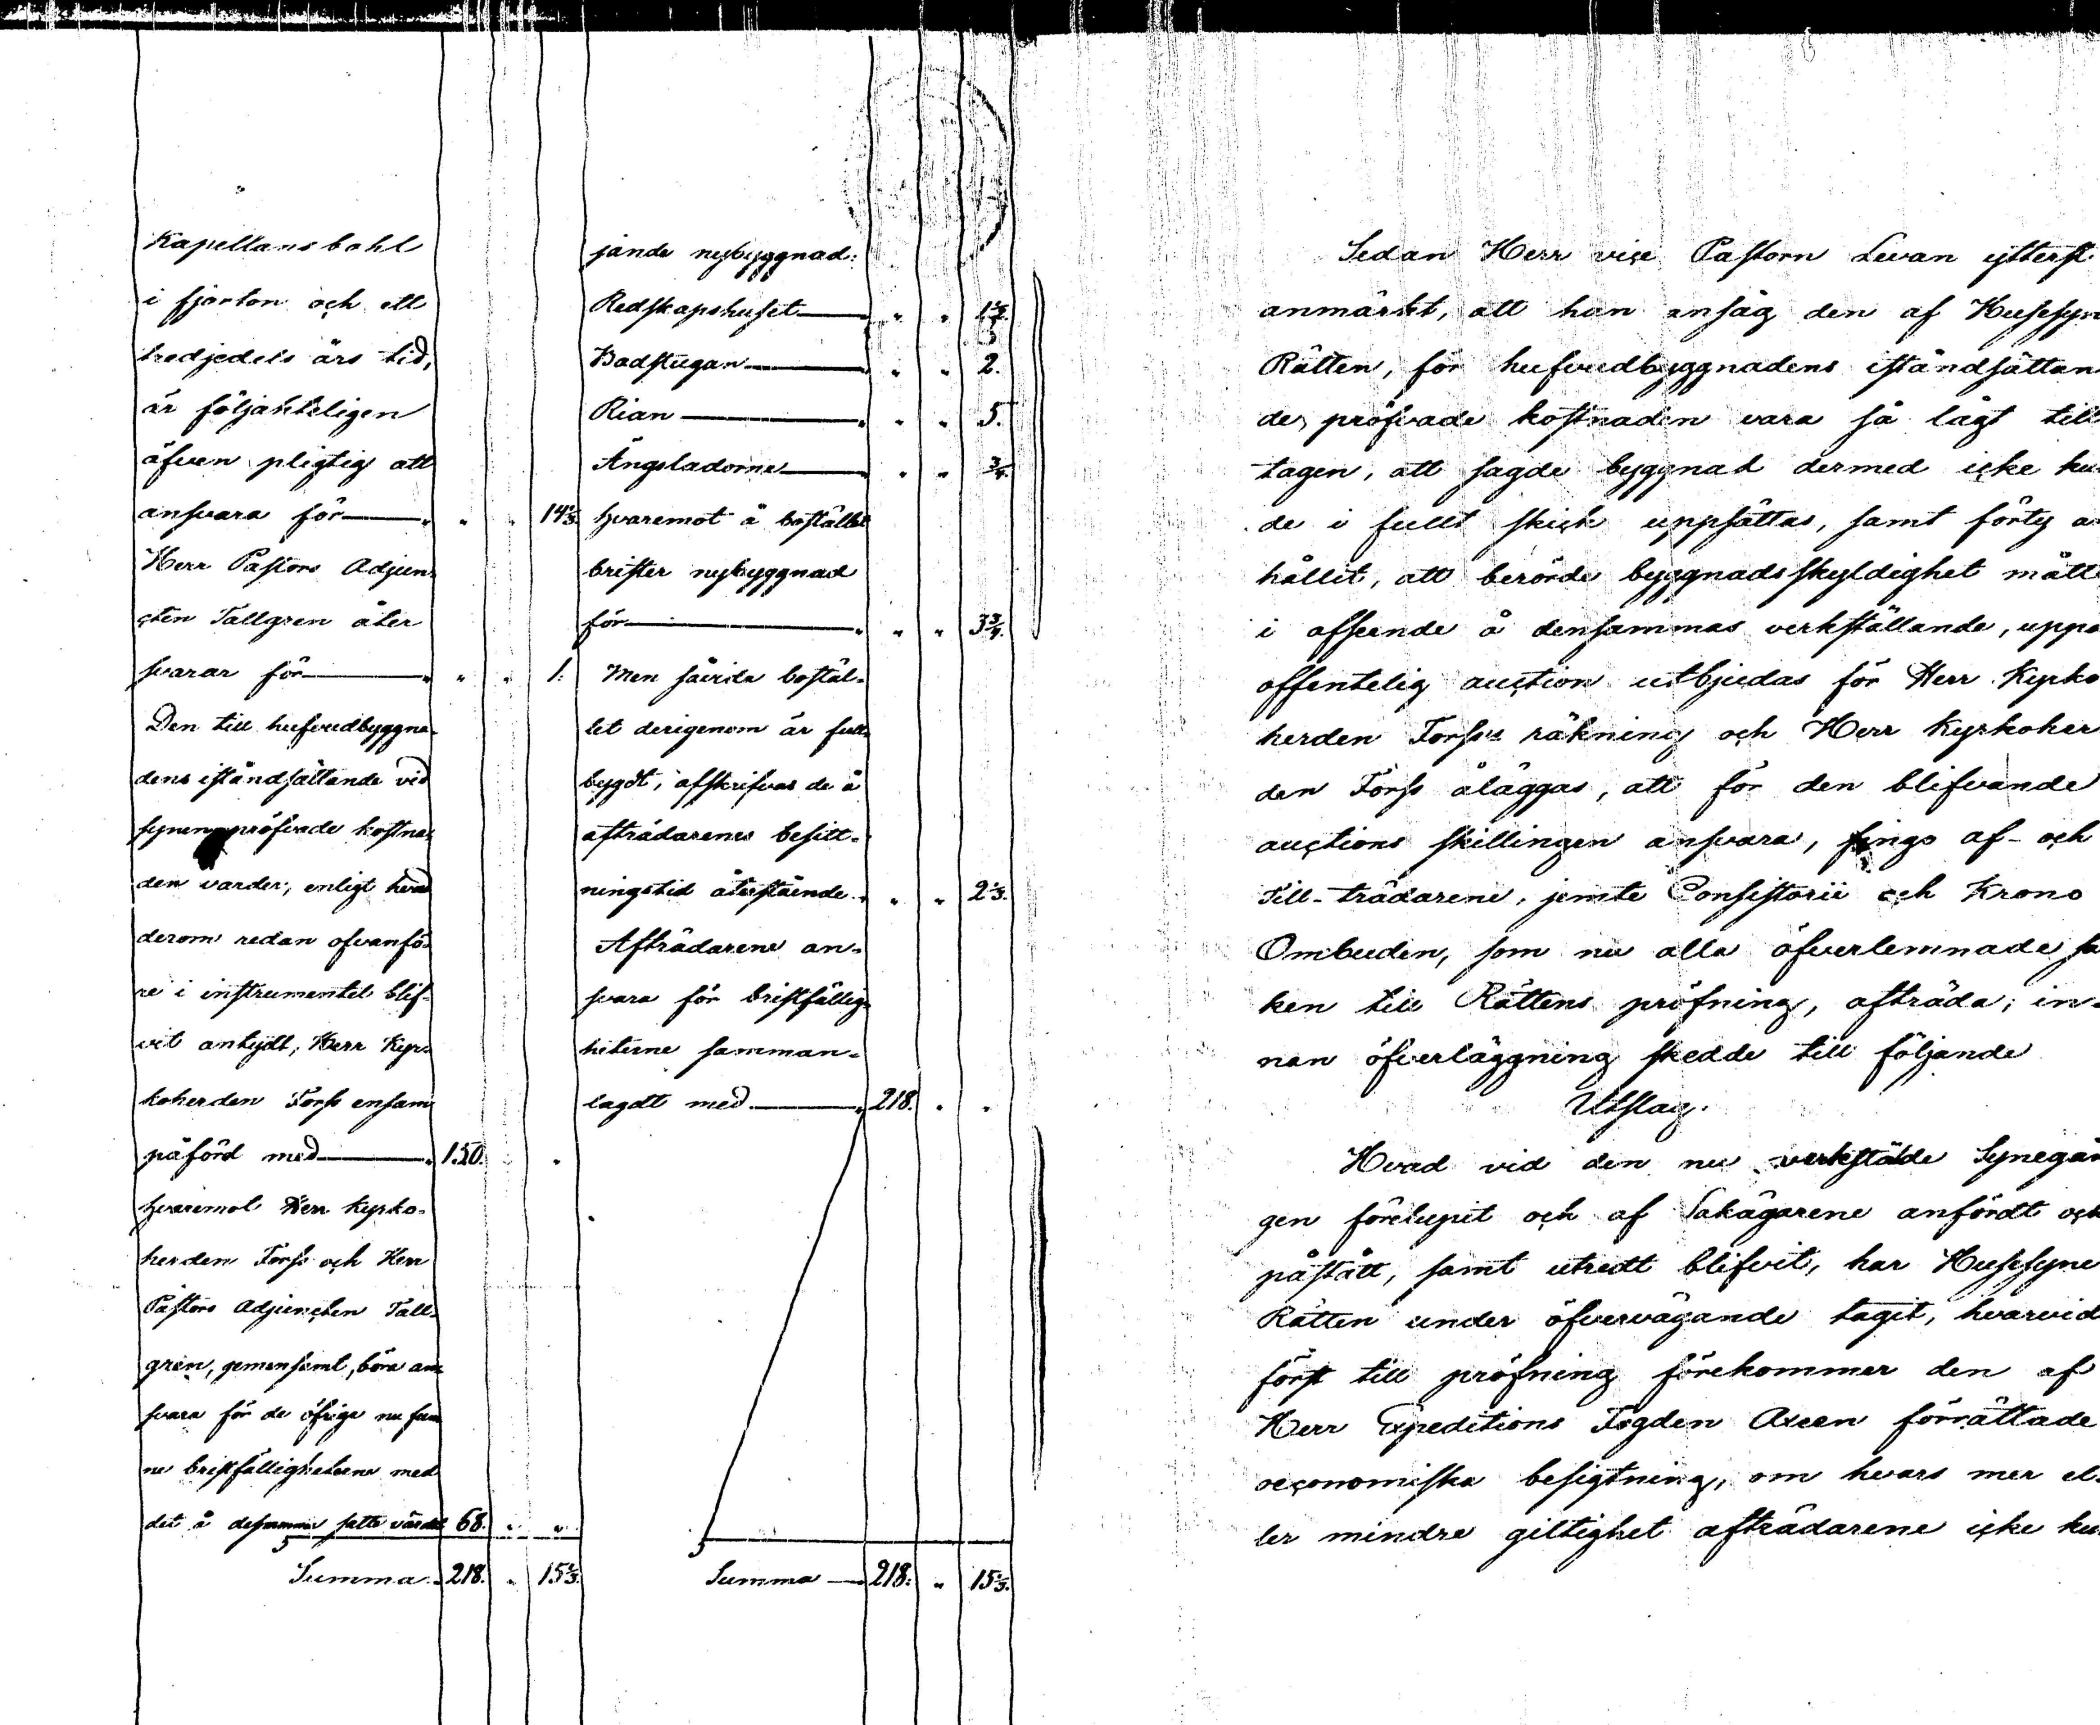 Kapellansbohl
i fjorton och ett
tredjedels års tid,
är följakteligen
äfven pligtig att
ansvara för — " " " 14⅓.
Herr Pastors Adjunc-
cten Tallgren åter
svarar för — " " " 1.
Den till hufvudbyggna-
dens iståndsättande vid
synen pröfvade kostna-
den varder, enligt hvad
derom redan ofvanfö-
re i instrumentet blif-
vit antydt, Herr Kyr-
koherden Forss ensam
påförd med — 150. "
hvaremot Herr Kyrko-
herden Forss och Herr
Pastors Adjuncten Tall-
gren, gemensamt, böra an-
svara för de öfrige nu fun-
ne bristfälligheterne med
det å desamma satte värdet 68. " "
Summa 218. " 15⅓.
jande nybyggnad:
Redskapshuset — " " 1½.
Badstugan — " " 2.
Rian — " " 5.
Ängsladorne — " " ¾.
hvaremot å bostället
brister nybyggnad
för — " " 3¾.
Men såvida bostäl-
let derigenom är full-
bygdt, afskrifvas de å
afträdarenes besitt-
ningstid återstående " " 2⅓.
Afträdarene an-
svara för bristfällig-
heterne samman-
lagdt med — 218. " "
Summa — 218. " 15⅓.
Sedan Herr vice Pastorn Levan ytterst
anmärkt, att han ansåg den af Husesyns
Rätten, för hufvudbyggnadens iståndsättan
de, pröfvade kostnaden vara så lågt till
tagen, att sagde byggnad dermed icke kun
de i fullt skick uppsättas, samt förty an
hållit, att berörde byggnadsskyldighet måtte
i afseende å densammas verkställande, uppå
offentelig auction utbjudas för Herr Kyrko
herden Forss's räkning och Herr Kyrkoher
den Forss åläggas, att för den blifvande
auctions skillingen ansvara, fingo af- och
till-trädarene, jemte Consistorii och Krono
Ombuden, som nu alla öfverlemnade sa
ken till Rättens pröfning, afträda; in-
nan öfverläggning skedde till följande
Utslag.
Hvad vid den nu verkstälde Synegån
gen förelupit och af Sakägarene anfördt och
påstått, samt utredt blifvit, har Husesyns
Rätten under öfvervägande tagit, hvarvid
först till pröfning förekommer den af
Herr Expeditions Fogden Axeen förrättade
oeconomiska besigtning, om hvars mer el-
ler mindre giltighet afträdarene icke kun